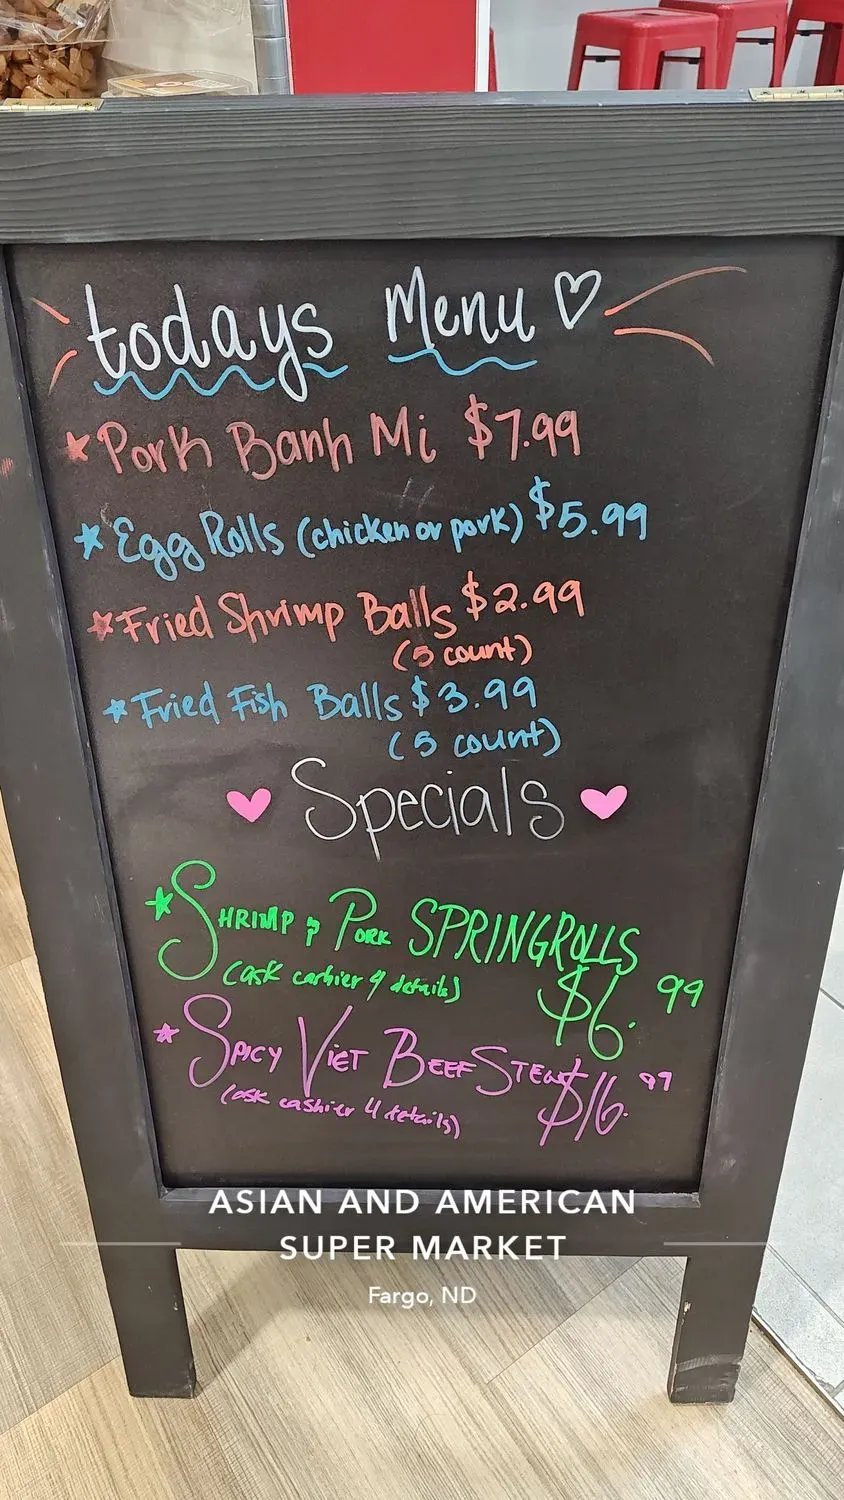 todays Menu ♡
★Pork Banh Mi $7.99
★Egg Rolls (chicken or pork) $5.99
★Fried Shrimp Balls $2.99
(5 count)
★Fried Fish Balls $3.99
(5 count)
♥ Specials ♥
★SHRIMP & PORK SPRINGROLLS
(ask cashier 4 details) $6.99
★SPICY VIET BEEF STEW
(ask cashier 4 details) $16.99
ASIAN AND AMERICAN
SUPER MARKET
Fargo, ND